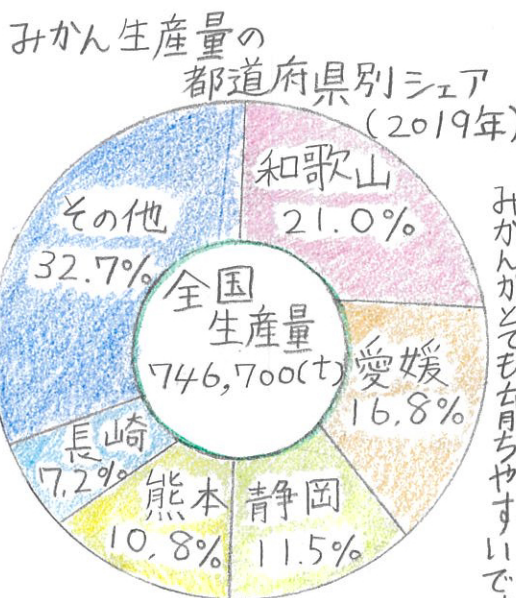 みかん生産量の
都道府県別シェア
(2019年)
和歌山
21.0%
愛媛
16.8%
静岡
11.5%
熊本
10.8%
長崎
7.2%
その他
32.7%
全国
生産量
746,700(t)
みかんがとても育ちやすいで